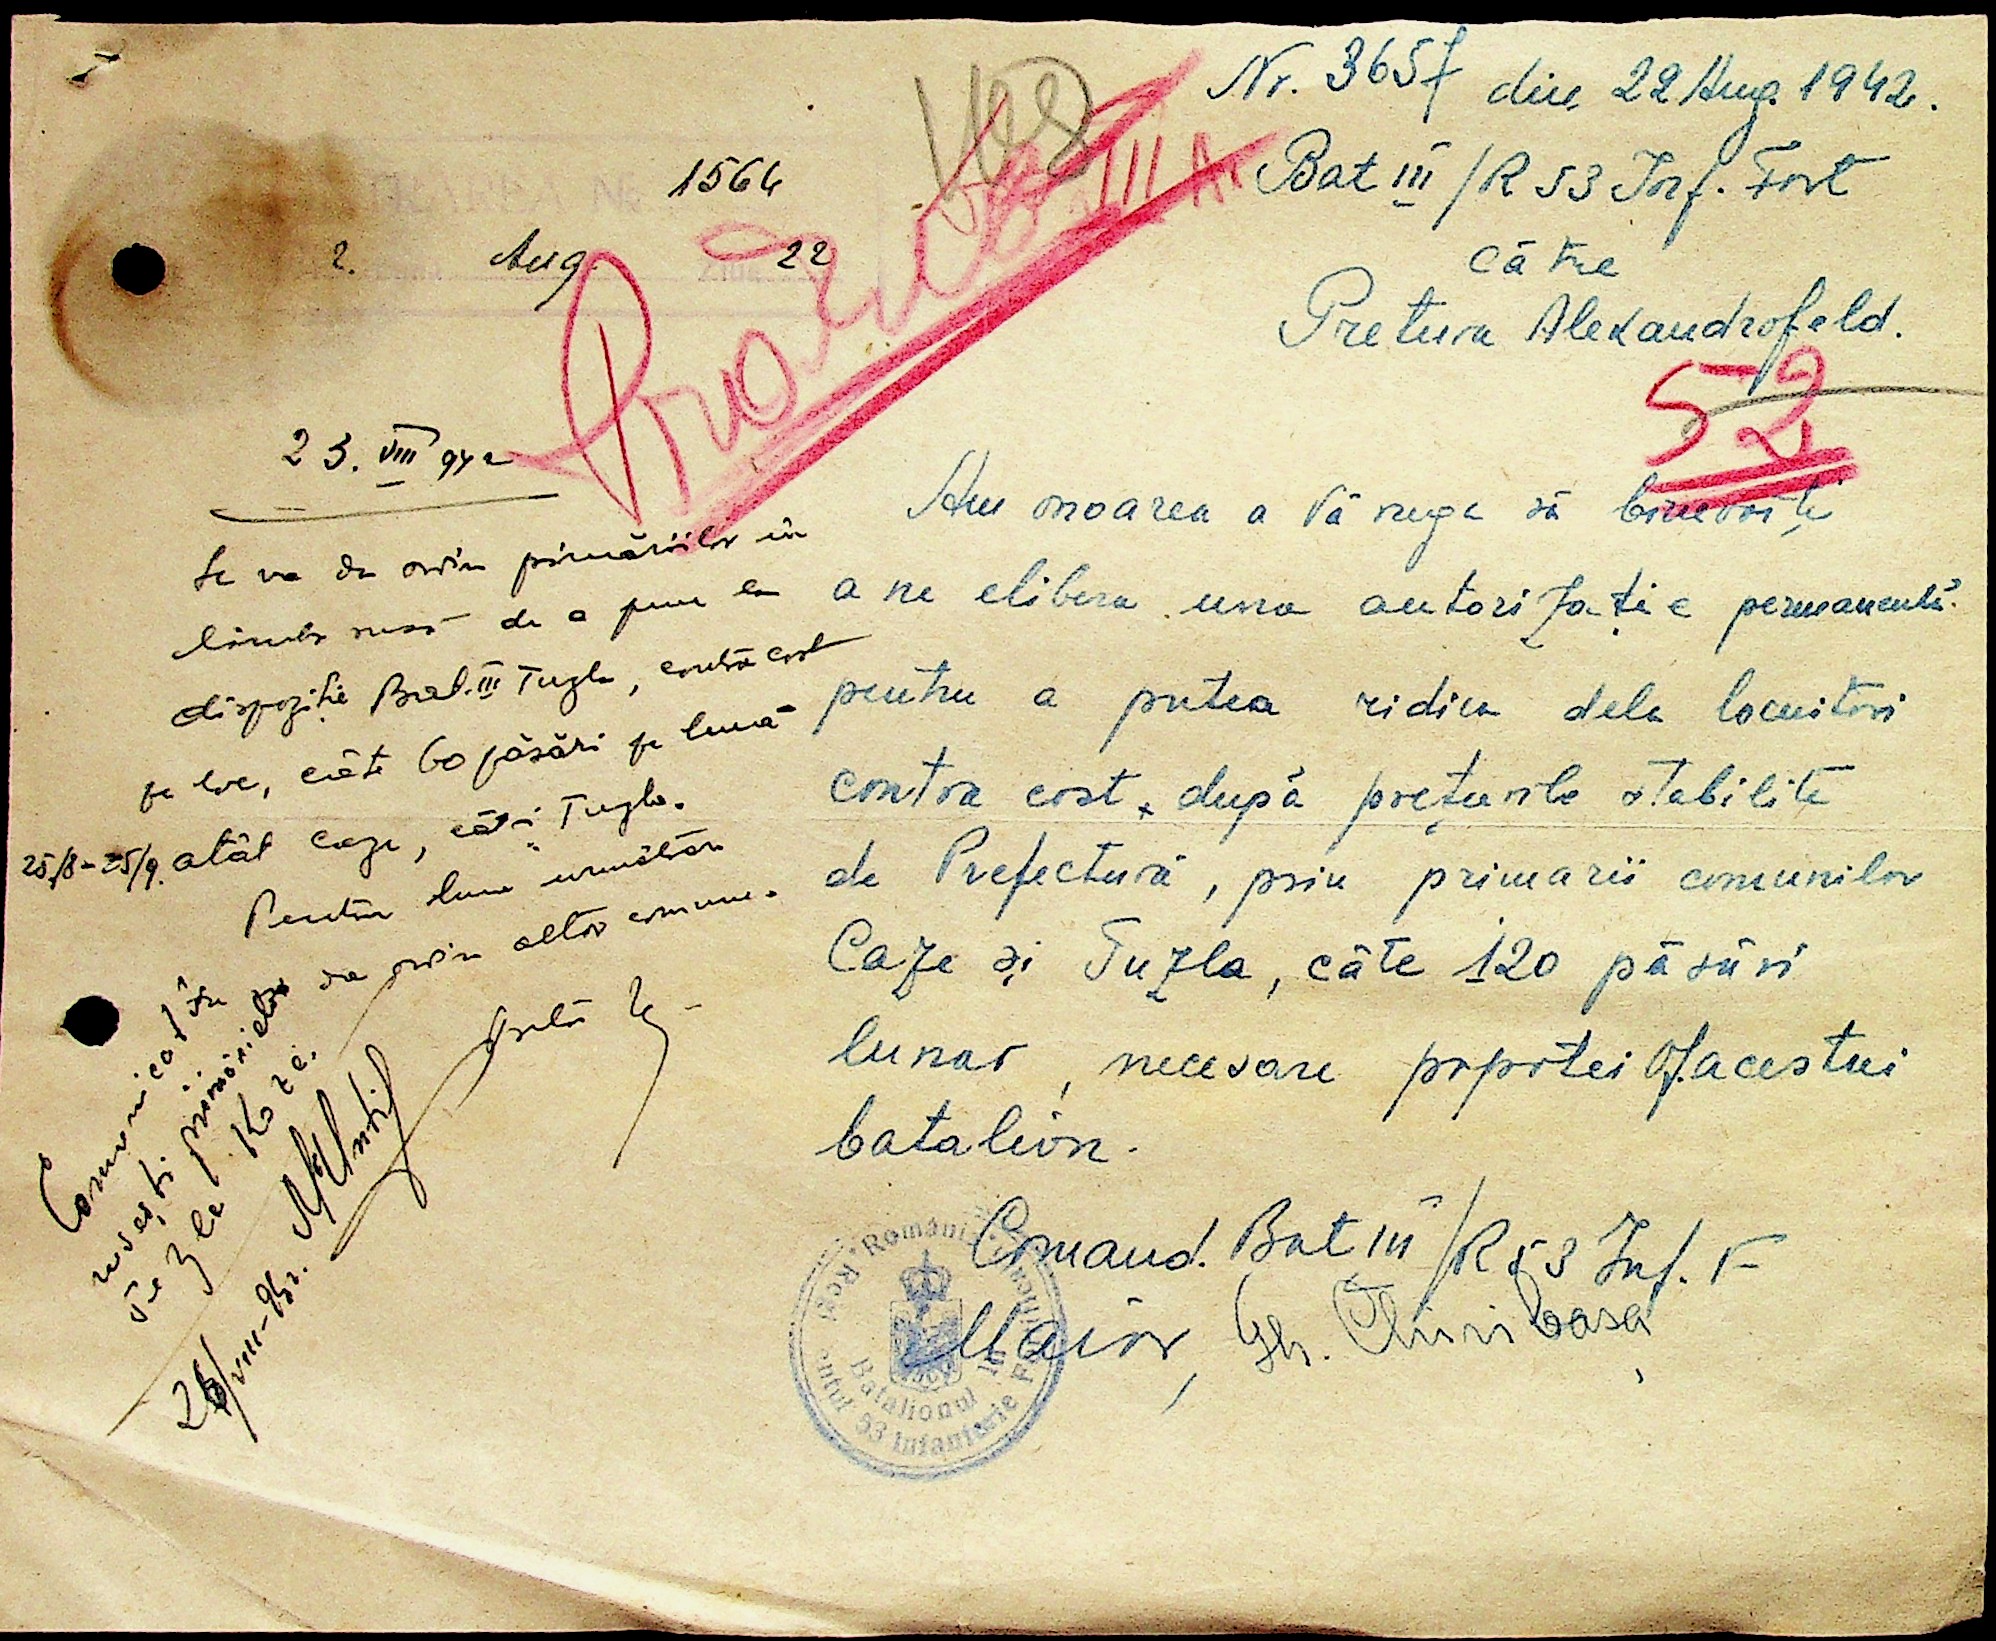 Nr. 3657 din 22 Aug. 1942.
Bat III / R 53 Inf. Fort
către
Pretura Alexandrofeld.
52
1564
2. Aug. 22
23. VIII 942
Se va da ordin primăriilor în
limba rusă de a pune la
dispoziție Bat. III Tuzla, contra cost
pe loc, câte 60 păsări pe lună
25/8 - 25/9. atât Caze, cât și Tuzla.
Pentru luna următoare
va da ordin altor comune.
Comunicat în
rusești primăriilor
Tuzla Kaze.
26/VIII-942.
Am onoarea a Vă ruga să binevoiți
a ne elibera una autorizație permanentă
pentru a putea ridica dela locuitori
contra cost, după prețurile stabilite
de Prefectură, prin primarii comunilor
Caze și Tuzla, câte 120 păsări
lunar, necesare popotei Of. acestui
batalion.
Comand. Bat III / R 53 Inf. F
Maior, Gh.
Batalionul III
53 Infanterie